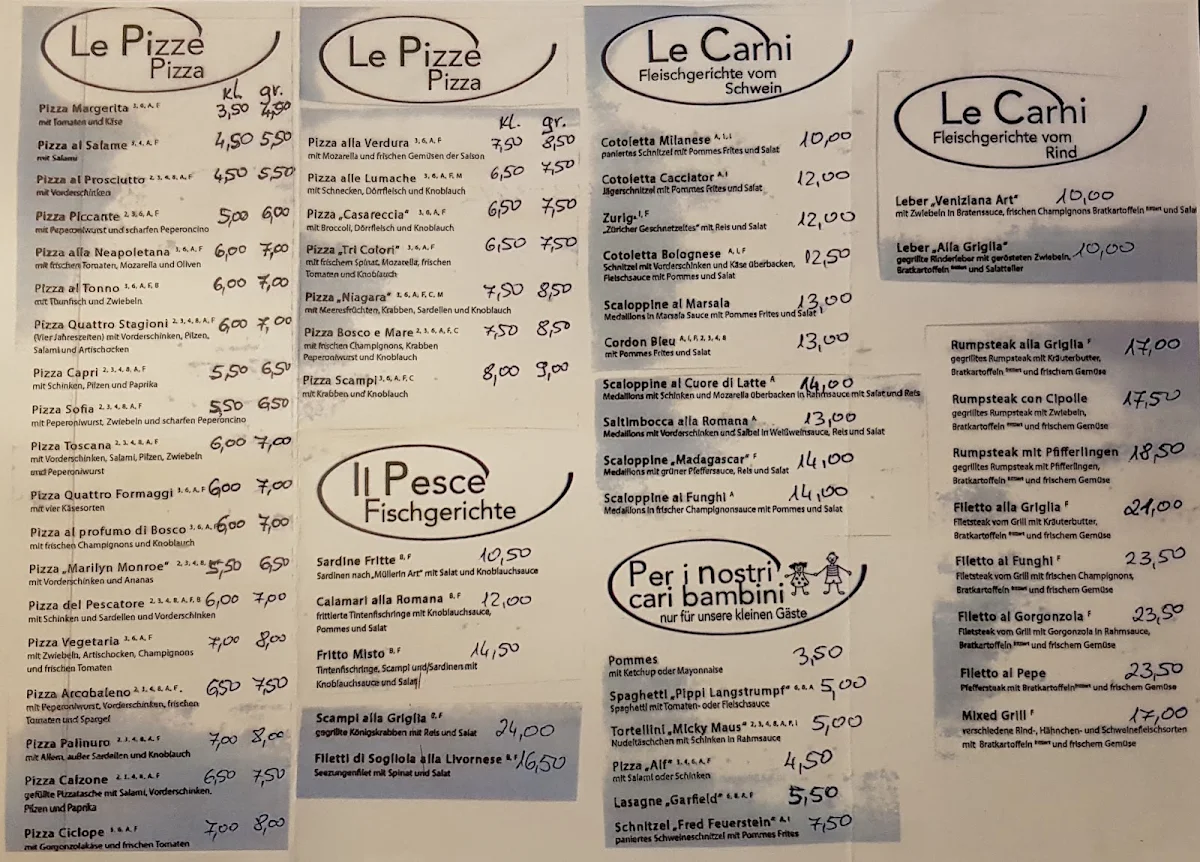 Le Pizze
Pizza
kl. gr.
Pizza Margerita 3, 6, A, F 3,50 4,50
mit Tomaten und Käse
Pizza al Salame 3, 4, A, F 4,50 5,50
mit Salami
Pizza al Prosciutto 2, 3, 4, 8, A, F 4,50 5,50
mit Vorderschinken
Pizza Piccante 2, 3, 6, A, F 5,00 6,00
mit Peperoniwurst und scharfen Peperoncino
Pizza alla Neapoletana 3, 6, A, F 6,00 7,00
mit frischen Tomaten, Mozarella und Oliven
Pizza al Tonno 3, 6, A, F, B 6,00 7,00
mit Thunfisch und Zwiebeln
Pizza Quattro Stagioni 2, 3, 4, 8, A, F 6,00 7,00
(Vier Jahreszeiten) mit Vorderschinken, Pilzen,
Salami und Artischocken
Pizza Capri 2, 3, 4, 8, A, F 5,50 6,50
mit Schinken, Pilzen und Paprika
Pizza Sofia 2, 3, 4, 8, A, F 5,50 6,50
mit Peperoniwurst, Zwiebeln und scharfen Peperoncino
Pizza Toscana 2, 3, 4, 8, A, F 6,00 7,00
mit Vorderschinken, Salami, Pilzen, Zwiebeln
und Peperoniwurst
Pizza Quattro Formaggi 3, 6, A, F 6,00 7,00
mit vier Käsesorten
Pizza al profumo di Bosco 3, 6, A, F 6,00 7,00
mit frischen Champignons und Knoblauch
Pizza „Marilyn Monroe" 2, 3, 4, 8, 5,50 6,50
mit Vorderschinken und Ananas
Pizza del Pescatore 2, 3, 4, 8, A, F, B 6,00 7,00
mit Schinken und Sardellen und Vorderschinken
Pizza Vegetaria 3, 6, A, F 7,00 8,00
mit Zwiebeln, Artischocken, Champignons
und frischen Tomaten
Pizza Arcobaleno 2, 3, 4, 8, A, F, 6,50 7,50
mit Peperoniwurst, Vorderschinken, frischen
Tomaten und Spargel
Pizza Palinuro 2, 3, 4, 8, A, F 7,00 8,00
mit Allem, außer Sardellen und Knoblauch
Pizza Calzone 2, 3, 4, 8, A, F 6,50 7,50
gefüllte Pizzatasche mit Salami, Vorderschinken,
Pilzen und Paprika
Pizza Ciclope 3, 6, A, F 7,00 8,00
mit Gorgonzolakäse und frischen Tomaten
Le Pizze
Pizza
kl. gr.
Pizza alla Verdura 3, 6, A, F 7,50 8,50
mit Mozarella und frischen Gemüsen der Saison
Pizza alle Lumache 3, 6, A, F, M 6,50 7,50
mit Schnecken, Dörrfleisch und Knoblauch
Pizza „Casareccia" 3, 6, A, F 6,50 7,50
mit Broccoli, Dörrfleisch und Knoblauch
Pizza „Tri Colori" 3, 6, A, F 6,50 7,50
mit frischem Spinat, Mozarella, frischen
Tomaten und Knoblauch
Pizza „Niagara" 3, 6, A, F, C, M 7,50 8,50
mit Meeresfrüchten, Krabben, Sardellen und Knoblauch
Pizza Bosco e Mare 2, 3, 6, A, F, C 7,50 8,50
mit frischen Champignons, Krabben
Peperoniwurst und Knoblauch
Pizza Scampi 3, 6, A, F, C 8,00 9,00
mit Krabben und Knoblauch
Il Pesce
Fischgerichte
Sardine Fritte B, F 10,50
Sardinen nach „Müllerin Art" mit Salat und Knoblauchsauce
Calamari alla Romana B, F 12,00
frittierte Tintenfischringe mit Knoblauchsauce,
Pommes und Salat
Fritto Misto B, F 14,50
Tintenfischringe, Scampi und/Sardinen mit
Knoblauchsauce und Salat
Scampi alla Griglia B, F 24,00
gegrillte Königskrabben mit Reis und Salat
Filetti di Sogliola alla Livornese B, F 16,50
Seezungenfilet mit Spinat und Salat
Le Carni
Fleischgerichte vom
Schwein
Cotoletta Milanese A, I, L 10,00
paniertes Schnitzel mit Pommes Frites und Salat
Cotoletta Cacciator A, I 12,00
Jägerschnitzel mit Pommes Frites und Salat
Zurig. I, F 12,00
„Züricher Geschnetzeltes" mit Reis und Salat
Cotoletta Bolognese A, I, F 12,50
Schnitzel mit Vorderschinken und Käse überbacken,
Fleischsauce mit Pommes und Salat
Scaloppine al Marsala 13,00
Medaillons in Marsala Sauce mit Pommes Frites und Salat
Cordon Bleu A, I, F, 2, 3, 4, 8 13,00
mit Pommes Frites und Salat
Scaloppine al Cuore di Latte A 14,00
Medaillons mit Schinken und Mozarella überbacken in Rahmsauce mit Salat und Reis
Saltimbocca alla Romana A 13,00
Medaillons mit Vorderschinken und Salbei in Weißweinsauce, Reis und Salat
Scaloppine „Madagascar" F 14,00
Medaillons mit grüner Pfeffersauce, Reis und Salat
Scaloppine al Funghi A 14,00
Medaillons in frischer Champignonsauce mit Pommes und Salat
Per i nostri
cari bambini
nur für unsere kleinen Gäste
Pommes 3,50
mit Ketchup oder Mayonnaise
Spaghetti „Pippi Langstrumpf" 6, 8, A 5,00
Spaghetti mit Tomaten- oder Fleischsauce
Tortellini „Micky Maus" 2, 3, 4, 8, A, F, I 5,00
Nudeltäschchen mit Schinken in Rahmsauce
Pizza „Alf" 3, 4, 6, A, F 4,50
mit Salami oder Schinken
Lasagne „Garfield" 6, 8, A, F 5,50
Schnitzel „Fred Feuerstein" A, I 7,50
paniertes Schweineschnitzel mit Pommes Frites
Le Carni
Fleischgerichte vom
Rind
Leber „Veniziana Art" 10,00
mit Zwiebeln in Bratensauce, frischen Champignons Bratkartoffeln und Salat
Leber „Alla Griglia" 10,00
gegrillte Rinderleber mit gerösteten Zwiebeln,
Bratkartoffeln und Salatteller
Rumpsteak alla Griglia F 17,00
gegrilltes Rumpsteak mit Kräuterbutter,
Bratkartoffeln und frischem Gemüse
Rumpsteak con Cipolle 17,50
gegrilltes Rumpsteak mit Zwiebeln,
Bratkartoffeln und frischem Gemüse
Rumpsteak mit Pfifferlingen 18,50
gegrilltes Rumpsteak mit Pfifferlingen,
Bratkartoffeln und frischem Gemüse
Filetto alla Griglia F 21,00
Filetsteak vom Grill mit Kräuterbutter,
Bratkartoffeln und frischem Gemüse
Filetto al Funghi F 23,50
Filetsteak vom Grill mit frischen Champignons,
Bratkartoffeln und frischem Gemüse
Filetto al Gorgonzola F 23,50
Filetsteak vom Grill mit Gorgonzola in Rahmsauce,
Bratkartoffeln und frischem Gemüse
Filetto al Pepe 23,50
Pfeffersteak mit Bratkartoffeln und frischem Gemüse
Mixed Grill F 17,00
verschiedene Rind-, Hähnchen- und Schweinefleischsorten
mit Bratkartoffeln und frischem Gemüse